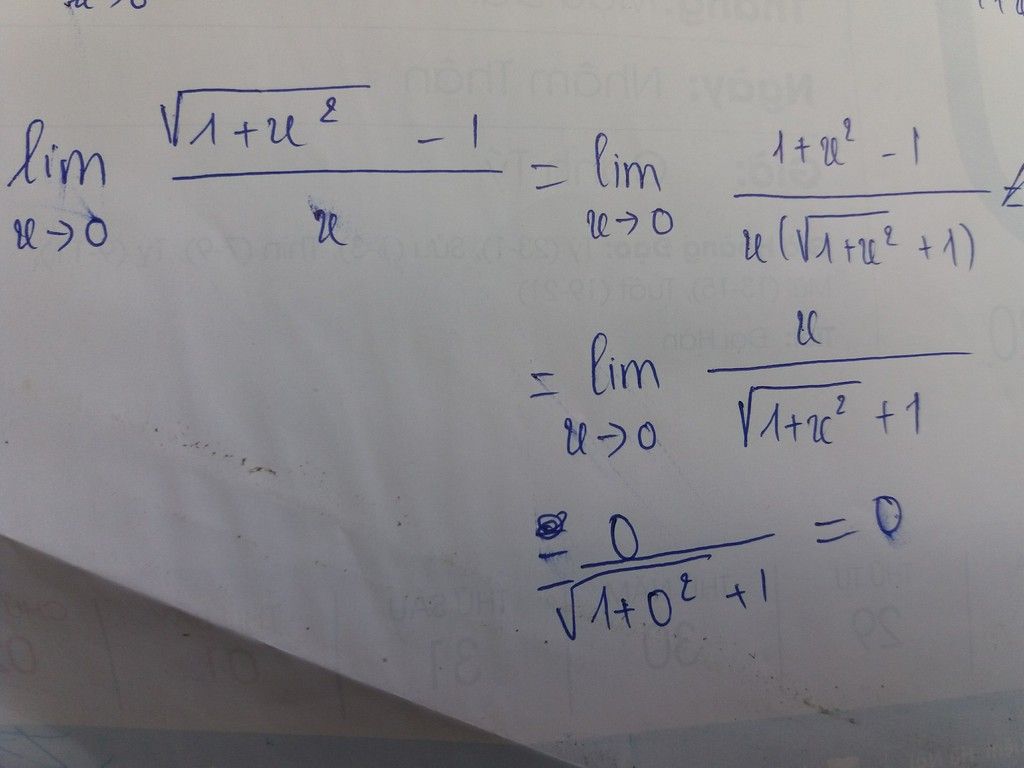 lim x→0 (√(1+x²) - 1)/x = lim x→0 (1+x² - 1)/(x(√(1+x²) + 1))
= lim x→0 x/(√(1+x²) + 1)
= 0/(√(1+0²) + 1) = 0